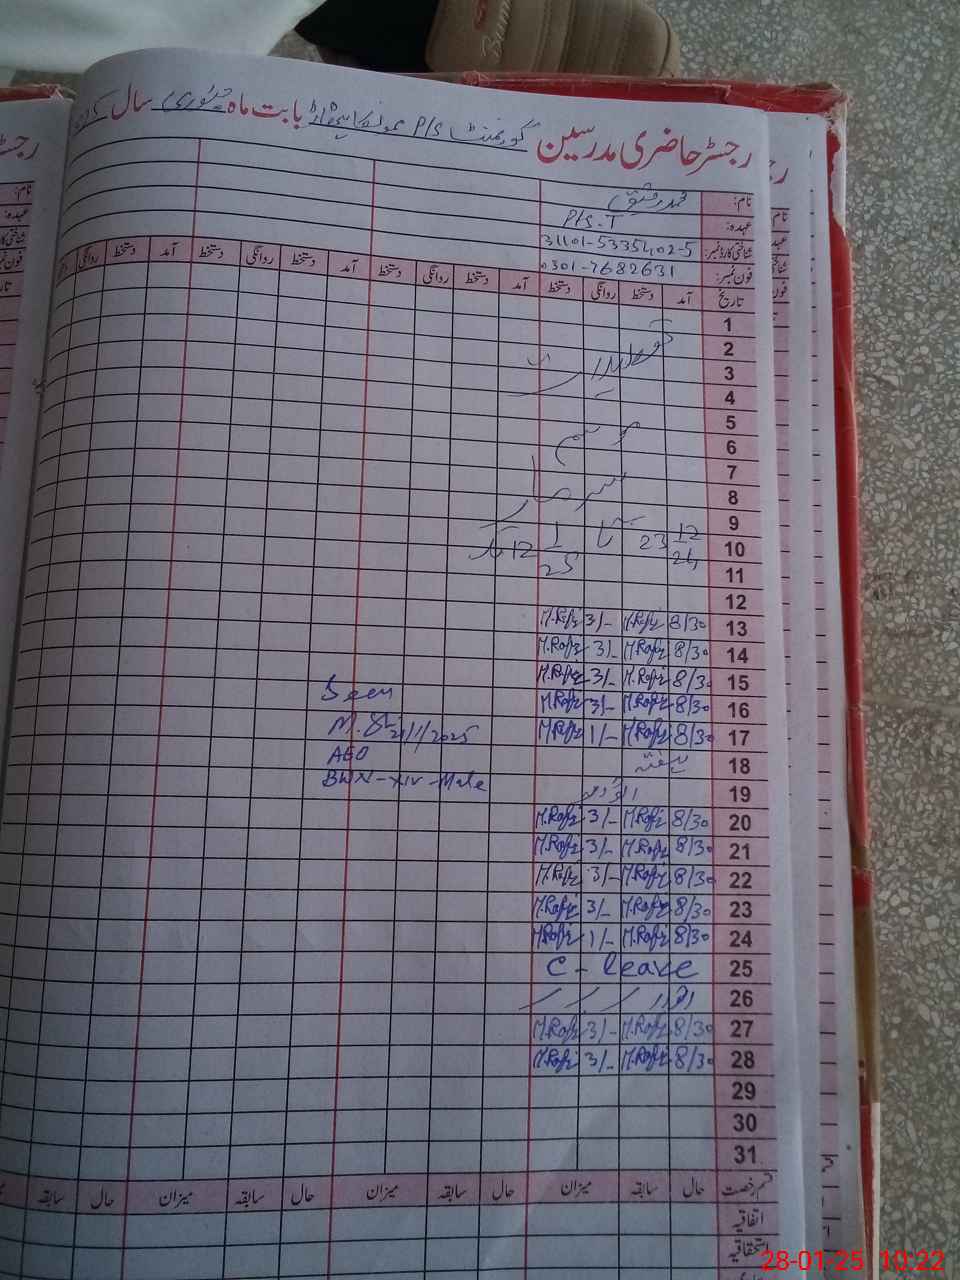 رجسٹر حاضری مدرسین گورنمنٹ P/S بابت ماہ جنوری سال
نام: محمد رفیق
عہدہ: P/S.T
شناختی کارڈ نمبر: 31101-5335402-5
فون نمبر: 0301-7682631
تاریخ آمد دستخط روانگی دستخط آمد دستخط روانگی دستخط آمد دستخط روانگی دستخط
1
2
3
تعطیلات
4
5
6
موسم
7
8
سرما
9
10 23 12/24 تا 12 1/25 تک
11
12
13 8/30 M.Rafiq 3/- M.Rafiq
14 8/30 M.Rafiq 3/- M.Rafiq
15 8/30 M.Rafiq 3/- M.Rafiq
16 8/30 M.Rafiq 3/- M.Rafiq
17 8/30 M.Rafiq 1/- M.Rafiq
Seen
21/1/2025
AEO
BWN-XIV-Male
18 ہفتہ
19 اتوار
20 8/30 M.Rafiq 3/- M.Rafiq
21 8/30 M.Rafiq 3/- M.Rafiq
22 8/30 M.Rafiq 3/- M.Rafiq
23 8/30 M.Rafiq 3/- M.Rafiq
24 8/30 M.Rafiq 1/- M.Rafiq
25 C - leave
26 اتوار
27 8/30 M.Rafiq 3/- M.Rafiq
28 8/30 M.Rafiq 3/- M.Rafiq
29
30
31
قسم رخصت حال سابقہ میزان حال سابقہ میزان حال سابقہ میزان حال سابقہ
اتفاقیہ
استحقاقیہ
28-01-25 10:22